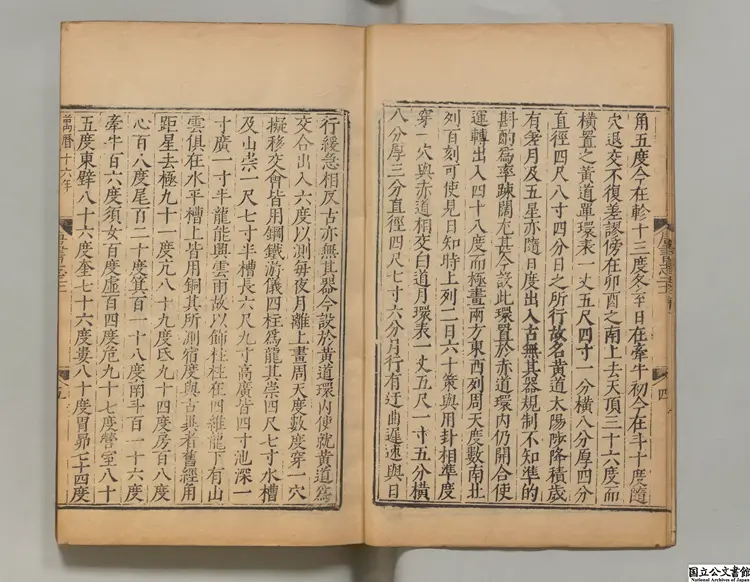 角五度今在軫十三度冬至日在牽牛初今在斗十度隨
穴退交不復差謬傍在卯酉之南上去天頂三十六度而
橫置之黃道單環表一丈五尺四寸一分橫八分厚四分
直徑四尺八寸四分日之所行故名黃道太陽陟降積歲
有差月及五星亦隨日度出入古無其器規制不知準的
斟酌爲率疎闊尤甚今設此環置於赤道環內仍開合使
運轉出入四十八度而極畫兩方東西列周天度數南北
列百刻可使見日知時上列三百六十策與用卦相準度
穿一穴與赤道相交白道月環表一丈五尺一寸五分橫
八分厚三分直徑四尺七寸六分月行有迂曲遲速與日
行緩急相反古亦無其器今設於黃道環內使就黃道爲
交合出入六度以測每夜月離上畫周天度數度穿一穴
擬移交會皆用鋼鐵游儀四柱爲龍其崇四尺七寸水槽
及山崇一尺七寸半槽長六尺九寸高廣皆四寸池深一
寸廣一寸半龍能興雲雨故以飾柱柱在四維龍下有山
雲俱在水平槽上皆用銅其所測宿度與古異者舊經角
距星去極九十一度亢八十九度氐九十四度房百八度
心百八度尾百二十度箕百一十八度南斗百一十六度
牽牛百六度須女百度虛百四度危九十七度營室八十
五度東壁八十六度奎七十六度婁八十度胃昴七十四度
萬曆十六年
国立公文書館
National Archives of Japan